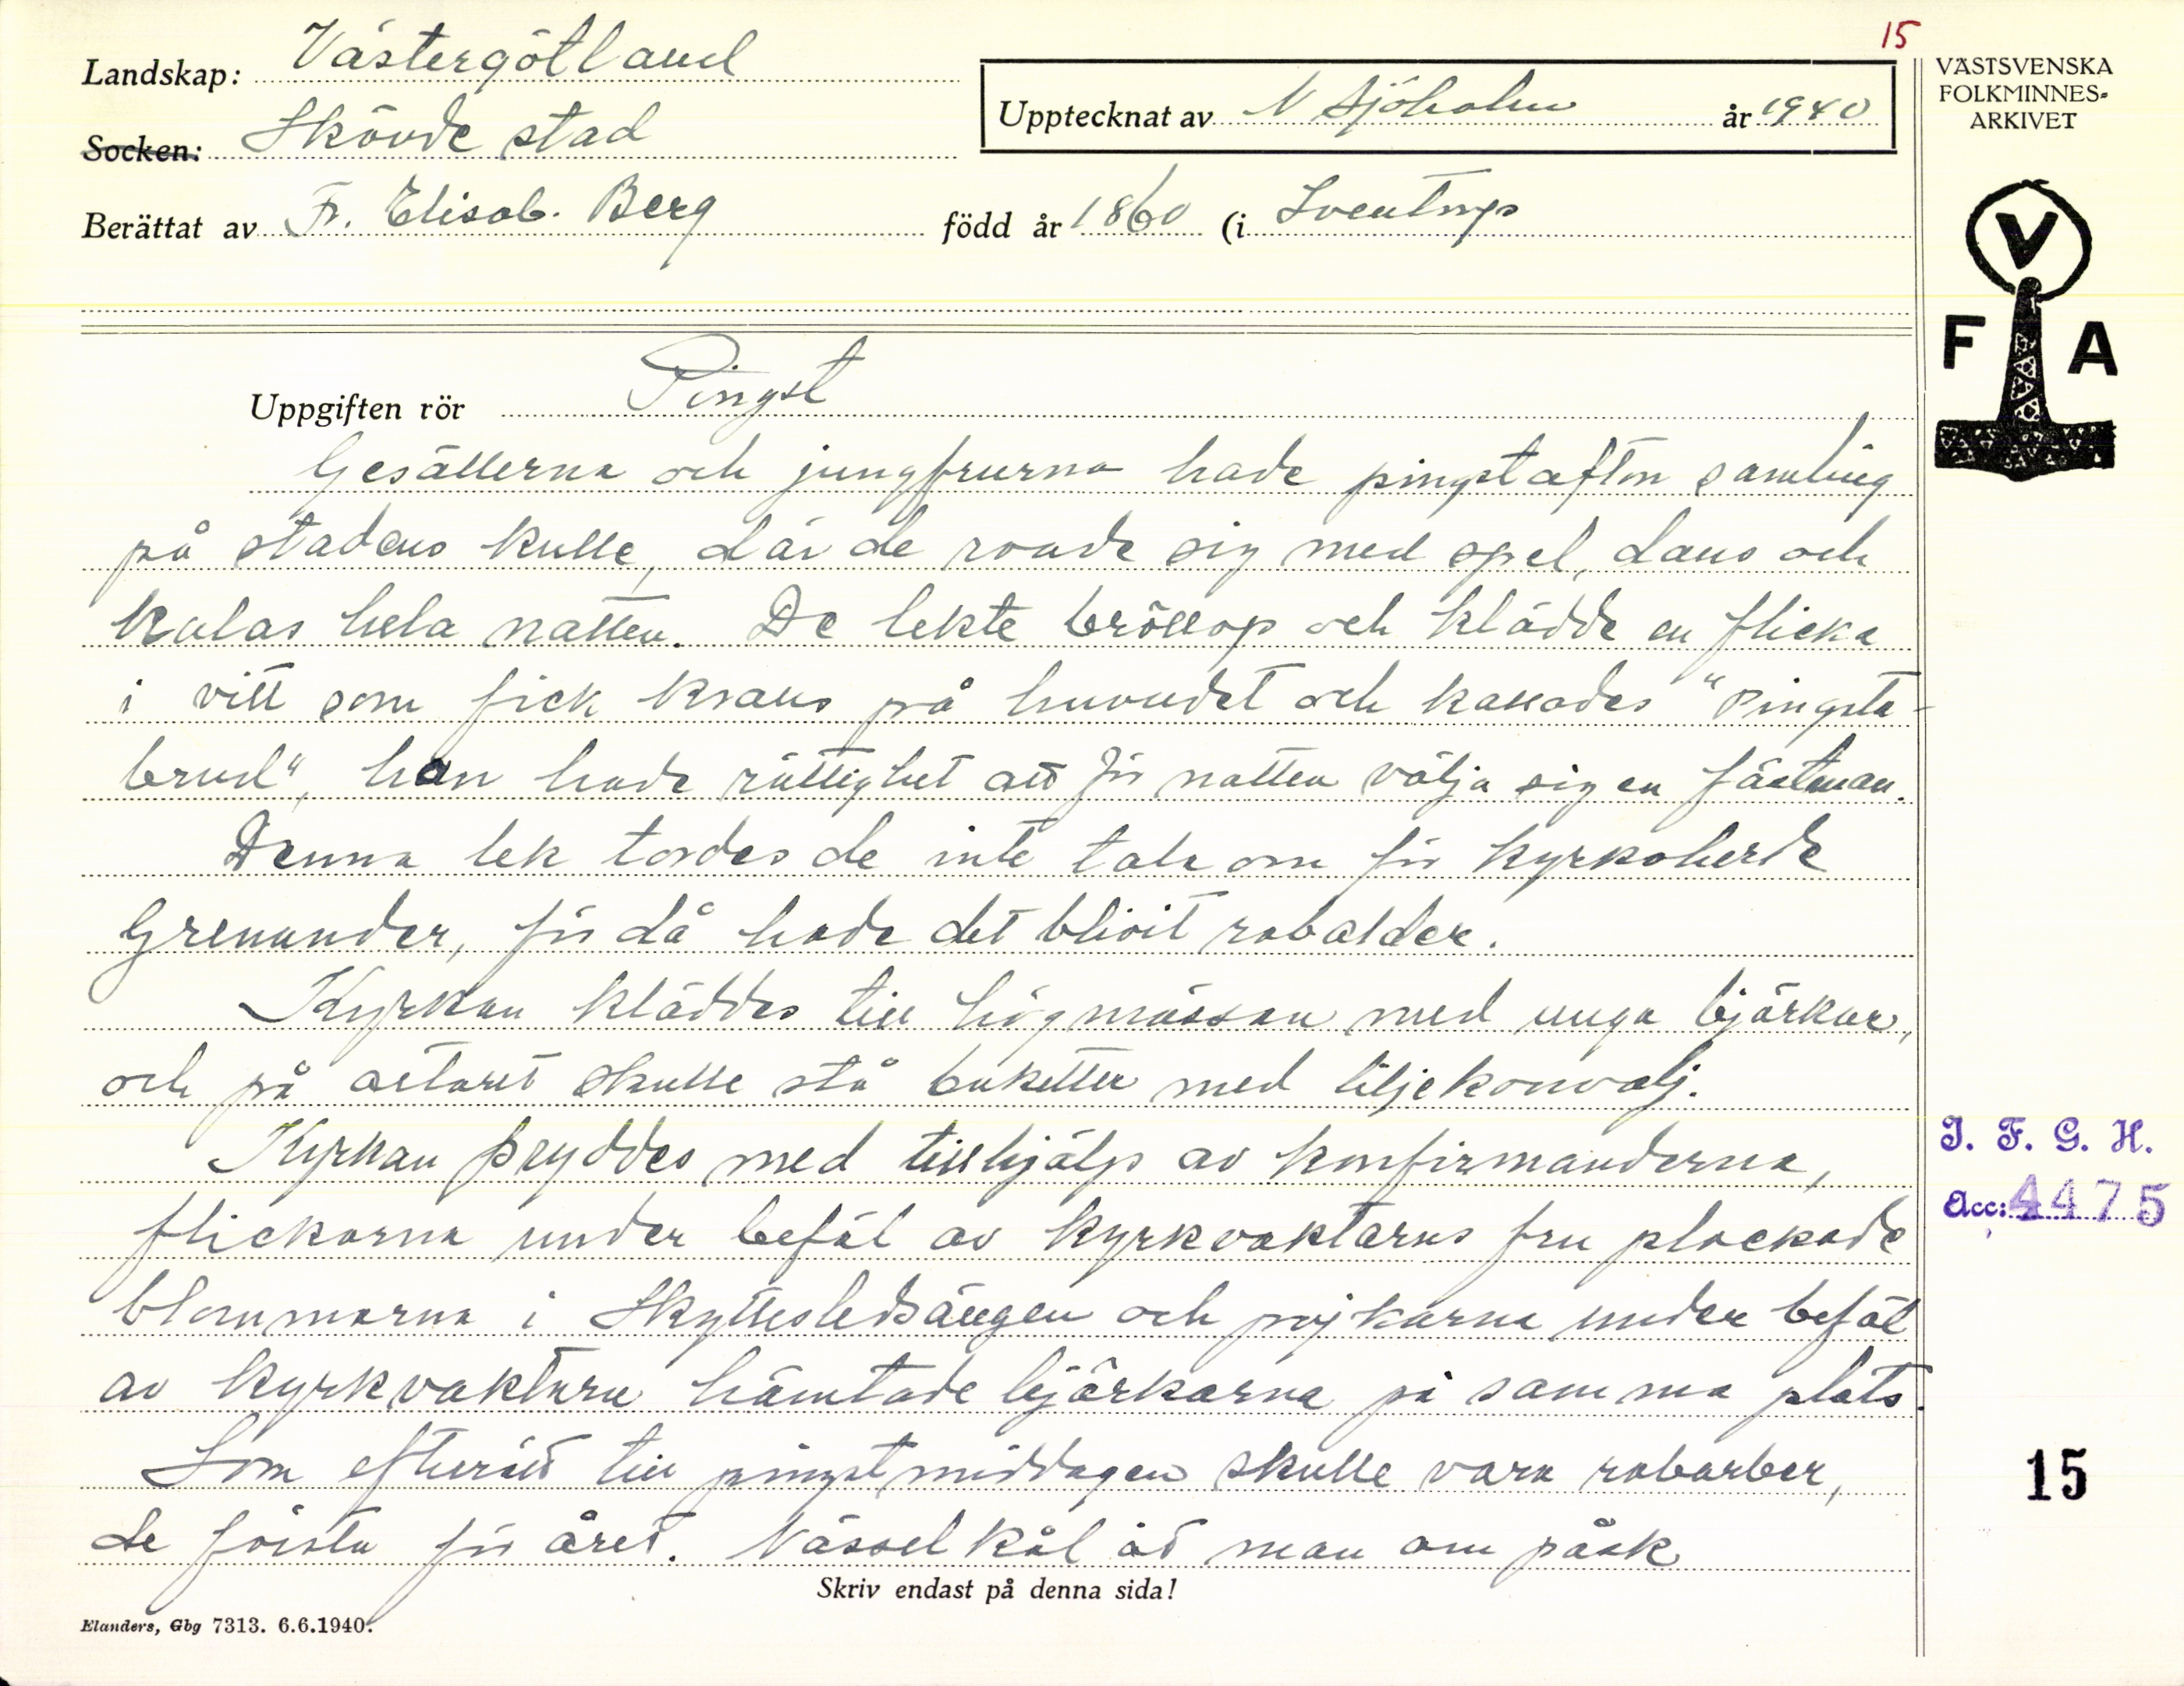 15
Landskap: Västergötland
Socken: Skövde stad
Upptecknat av N Sjöholm år 1940
Berättat av Fr. Elisab. Berg född år 1860 (i Sventorps
VÄSTSVENSKA
FOLKMINNES-
ARKIVET
V
F A
Uppgiften rör Pingst
Gesällerna och jungfrurna hade pingstafton samling
på stadens kulle, där de roade sig med spel, dans och
kalas hela natten. De lekte bröllop och klädde en flicka
i vitt som fick krans på huvudet och kallades "Pingsta-
brud", hon hade rättighet att för natten välja sig en fästman.
Denna lek tordes de inte tala om för kyrkoherde
Grenander, för då hade det blivit rabalder.
Kyrkan kläddes till högmässan med unga björkar,
och på altaret skulle stå buketter med liljekonvalj.
Kyrkan pryddes med tillhjälp av konfirmanderna,
flickorna under befäl av kyrkvaktarns fru plockade
blommorna i Skyttesledsängen och pojkarna under befäl
av kyrkvaktarn hämtade björkarna på samma plats.
Som efterrätt till pingstmiddagen skulle vara rabarber,
de första för året. Nässelkål åt man om påsk
I. F. G. H.
Acc: 4475
15
Skriv endast på denna sida!
Elanders, Gbg 7313. 6.6.1940.